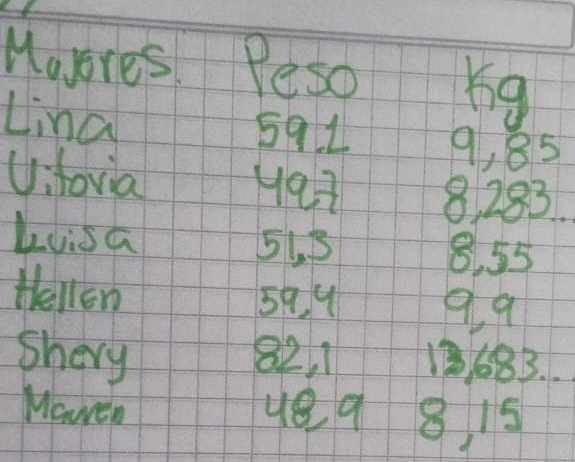 Mayores. Peso Kg
Lina 59.1 9,85
Vitoria 49,7 8,283...
Luisa 51,3 8,55
Hellen 59,4 9,9
Shery 82,1 13,683...
48,9 8,15